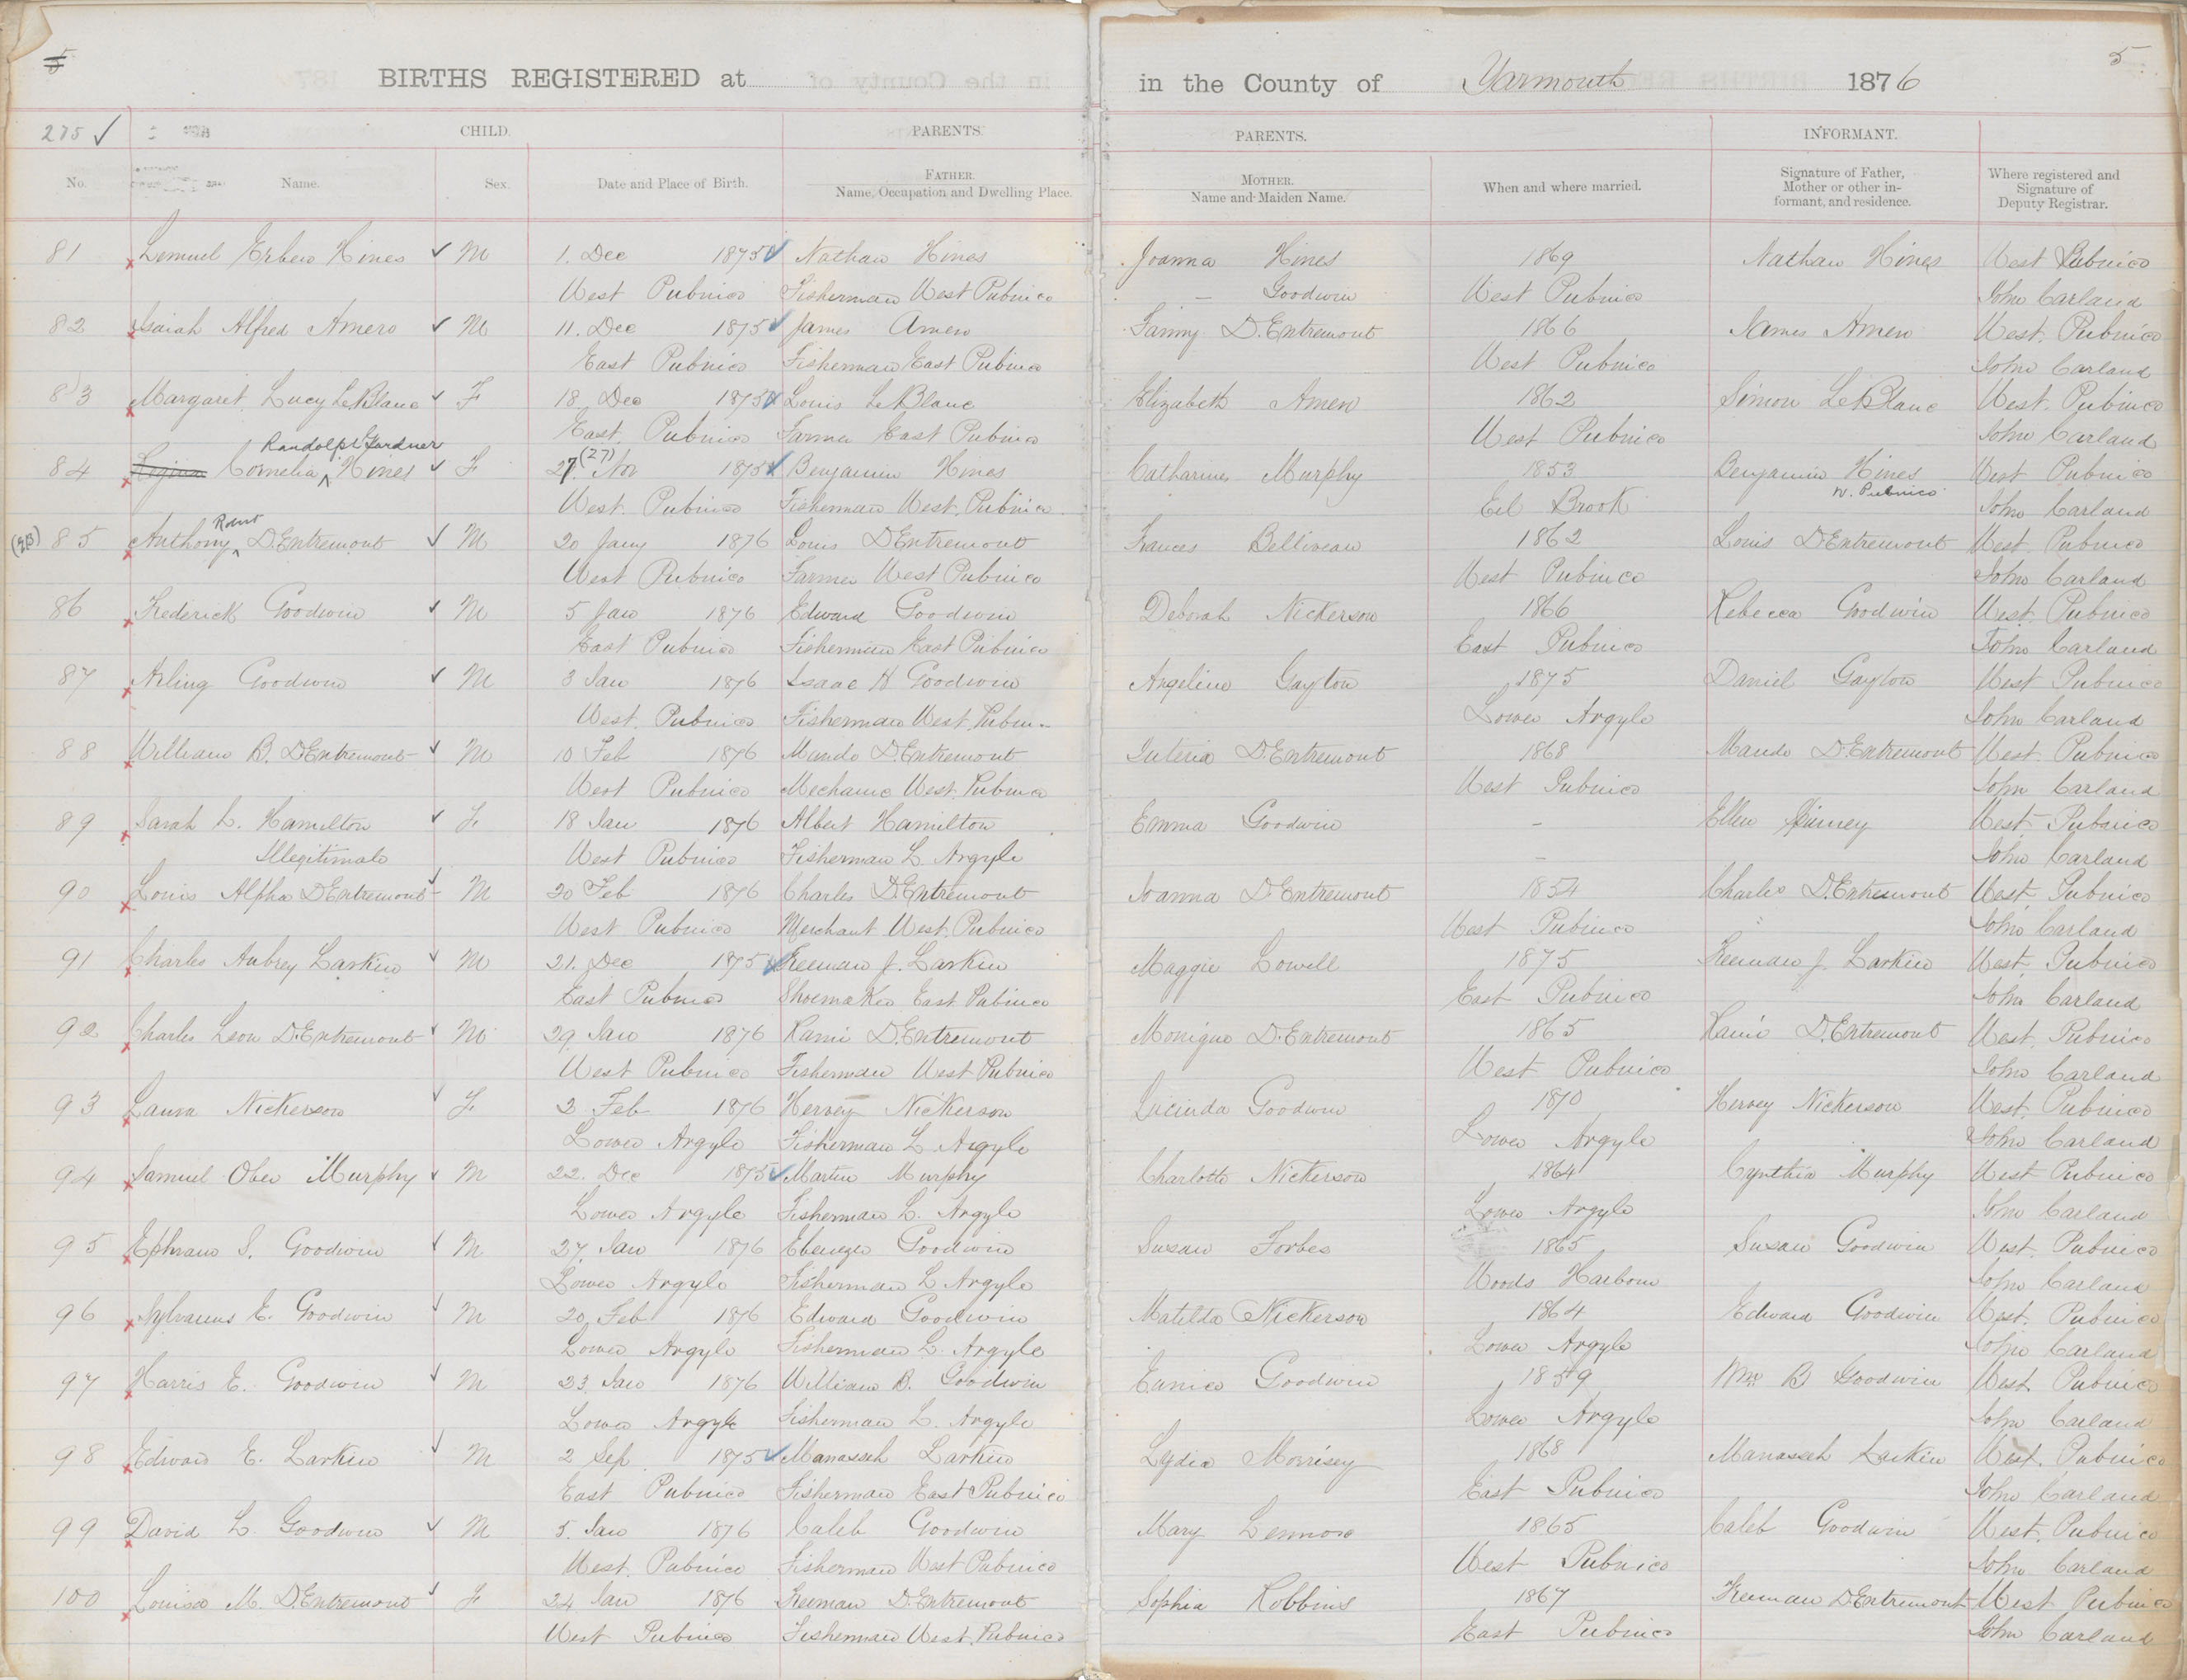 5
5
BIRTHS REGISTERED at in the County of Yarmouth 1876
275 ✓ CHILD. PARENTS. PARENTS. INFORMANT.
No. Name. Sex. Date and Place of Birth. FATHER. Name, Occupation and Dwelling Place. MOTHER. Name and Maiden Name. When and where married. Signature of Father, Mother or other informant, and residence. Where registered and Signature of Deputy Registrar.
81 Lemuel Erben Hines ✓ M 1. Dec 1875 ✓ Nathan Hines Joanna Hines 1869 Nathan Hines West Pubnico
West Pubnico Fisherman West Pubnico – Goodwin West Pubnico John Carland
82 Isaiah Alfred Amero ✓ M 11. Dec 1875 ✓ James Amero Fanny D.Entremont 1866 James Amero West. Pubnico
East Pubnico Fisherman East Pubnico West Pubnico John Carland
83 Margaret Lucy LeBlanc ✓ F 18 Dec 1875 ✓ Louis LeBlanc Elizabeth Amero 1862 Simon LeBlanc West. Pubnico
East. Pubnico Farmer East Pubnico West Pubnico John Carland
Randolph Gardner
84 Cornelia ^ Hines ✓ F 27 (27) Nov 1875 ✓ Benjamin Hines Catharine Murphy 1853 Benjamin Hines West Pubnico
West. Pubnico Fisherman West. Pubnico Eel Brook W. Pubnico John Carland
85 Anthony ^ D.Entremont ✓ M 20 Jany 1876 Louis DEntremont Frances Belliveau 1862 Louis DEntremont West. Pubnico
West Pubnico Farmer West Pubnico West Pubnico John Carland
86 Frederick Goodwin ✓ M 5 Jan 1876 Edward Goodwin Deborah Nickerson 1866 Rebecca Goodwin West. Pubnico
East Pubnico Fisherman East Pubnico East Pubnico John Carland
87 Arling Goodwin ✓ M 3 Jan 1876 Isaac H Goodwin Angelina Gayton 1875 Daniel Gayton West Pubnico
West. Pubnico Fisherman West. Pubnico Lower Argyle John Carland
88 William B. DEntremont ✓ M 10 Feb 1876 Mande D.Entremont D.Entremont 1868 Mande D.Entremont West. Pubnico
West Pubnico Mechanic West. Pubnico West Pubnico John Carland
89 Sarah L. Hamilton ✓ F. 18 Jan 1876 Albert Hamilton Emma Goodwin – Ellen West Pubnico
Illegitimate West Pubnico Fisherman L. Argyle – John Carland
90 Louis Alpha DEntremont ✓ M 20 Feb 1876 Charles D.Entremont Joanna D Entremont 1854 Charles D.Entremont West. Pubnico
West Pubnico Merchant West. Pubnico West Pubnico John Carland
91 Charles Aubrey Larkin ✓ M 21. Dec 1875 ✓ Freeman J. Larkin Maggie Lowell 1875 Freeman J. Larkin West. Pubnico
East Pubnico Shoemaker East Pubnico East Pubnico John Carland
92 Charles Leon D.Entremont ✓ M 29 Jan 1876 Rami D.Entremont Monique D.Entremont 1865 Rami D.Entremont West. Pubnico
West Pubnico Fisherman West Pubnico West Pubnico John Carland
93 Laura Nickerson ✓ F. 2 Feb 1876 Hervey Nickerson Lucinda Goodwin 1870 Hervey Nickerson West. Pubnico
Lower Argyle Fisherman L. Argyle Lower Argyle John Carland
94 Samuel Ober Murphy ✓ M 22. Dec 1875 ✓ Martin Murphy Charlotte Nickerson 1864 Cynthia Murphy West Pubnico
Lower Argyle Fisherman L. Argyle Lower Argyle John Carland
95 Ephraim S. Goodwin ✓ M 27. Jan 1876 Ebenezer Goodwin Susan Forbes 1865 Susan Goodwin West. Pubnico
Lower Argyle Fisherman L Argyle Woods Harbour John Carland
96 Sylvanus E. Goodwin ✓ M 20 Feb 1876 Edward Goodwin Matilda Nickerson 1864 Edward Goodwin West. Pubnico
Lower Argyle Fisherman L. Argyle Lower Argyle John Carland
97 Harris E. Goodwin ✓ M 23 Jan 1876 William B. Goodwin Eunice Goodwin 1859 Wm B Goodwin West. Pubnico
Lower Argyle Fisherman L. Argyle Lower Argyle John Carland
98 Edward E. Larkin ✓ M 2 Sep 1875 ✓ Manasseh Larkin Lydia Morrisey 1868 Manasseh Larkin West. Pubnico
East Pubnico Fisherman East Pubnico East Pubnico John Carland
99 David L. Goodwin ✓ M 5. Jan 1876 Caleb Goodwin Mary Lennox 1865 Caleb Goodwin West. Pubnico
West. Pubnico Fisherman West Pubnico West Pubnico John Carland
100 Louisa M. D.Entremont ✓ F 24 Jan 1876 Freeman D.Entremont Sophia Robbins 1867 Freeman DEntremont West Pubnico
West Pubnico Fisherman West. Pubnico East Pubnico John Carland